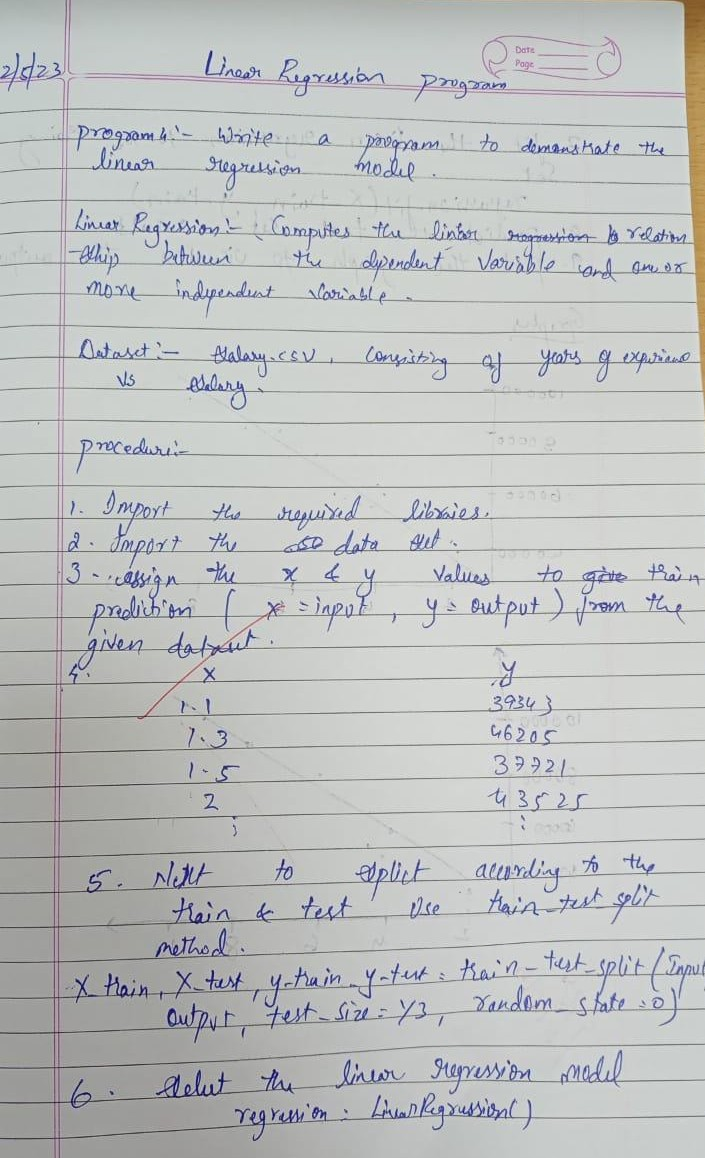 Date
Page
2/5/23
Linear Regression program
program 4:- Write a program to demonstrate the
linear regression model.
Linear Regression:- Computes the linear regression relation
-ship between the dependent variable and one or
more independent variable.
Dataset:- Salary.csv, Consisting of years of experience
vs Salary.
procedure:-
1. Import the required libraies.
2. Import the data set.
3. assign the x & y values to give train
prediction ( x = input, y = output) from the
given dataset.
4. x y
1.1 39343
1.3 46205
1.5 37721
2 43525
: :
5. Next to split according to the
train & test Use train_test_split
method.
X_train, X_test, y_train y_test = train_test_split(Input
output, test_size = 1/3, random_state = 0)
6. Select the linear regression model
regression = LinearRegression()